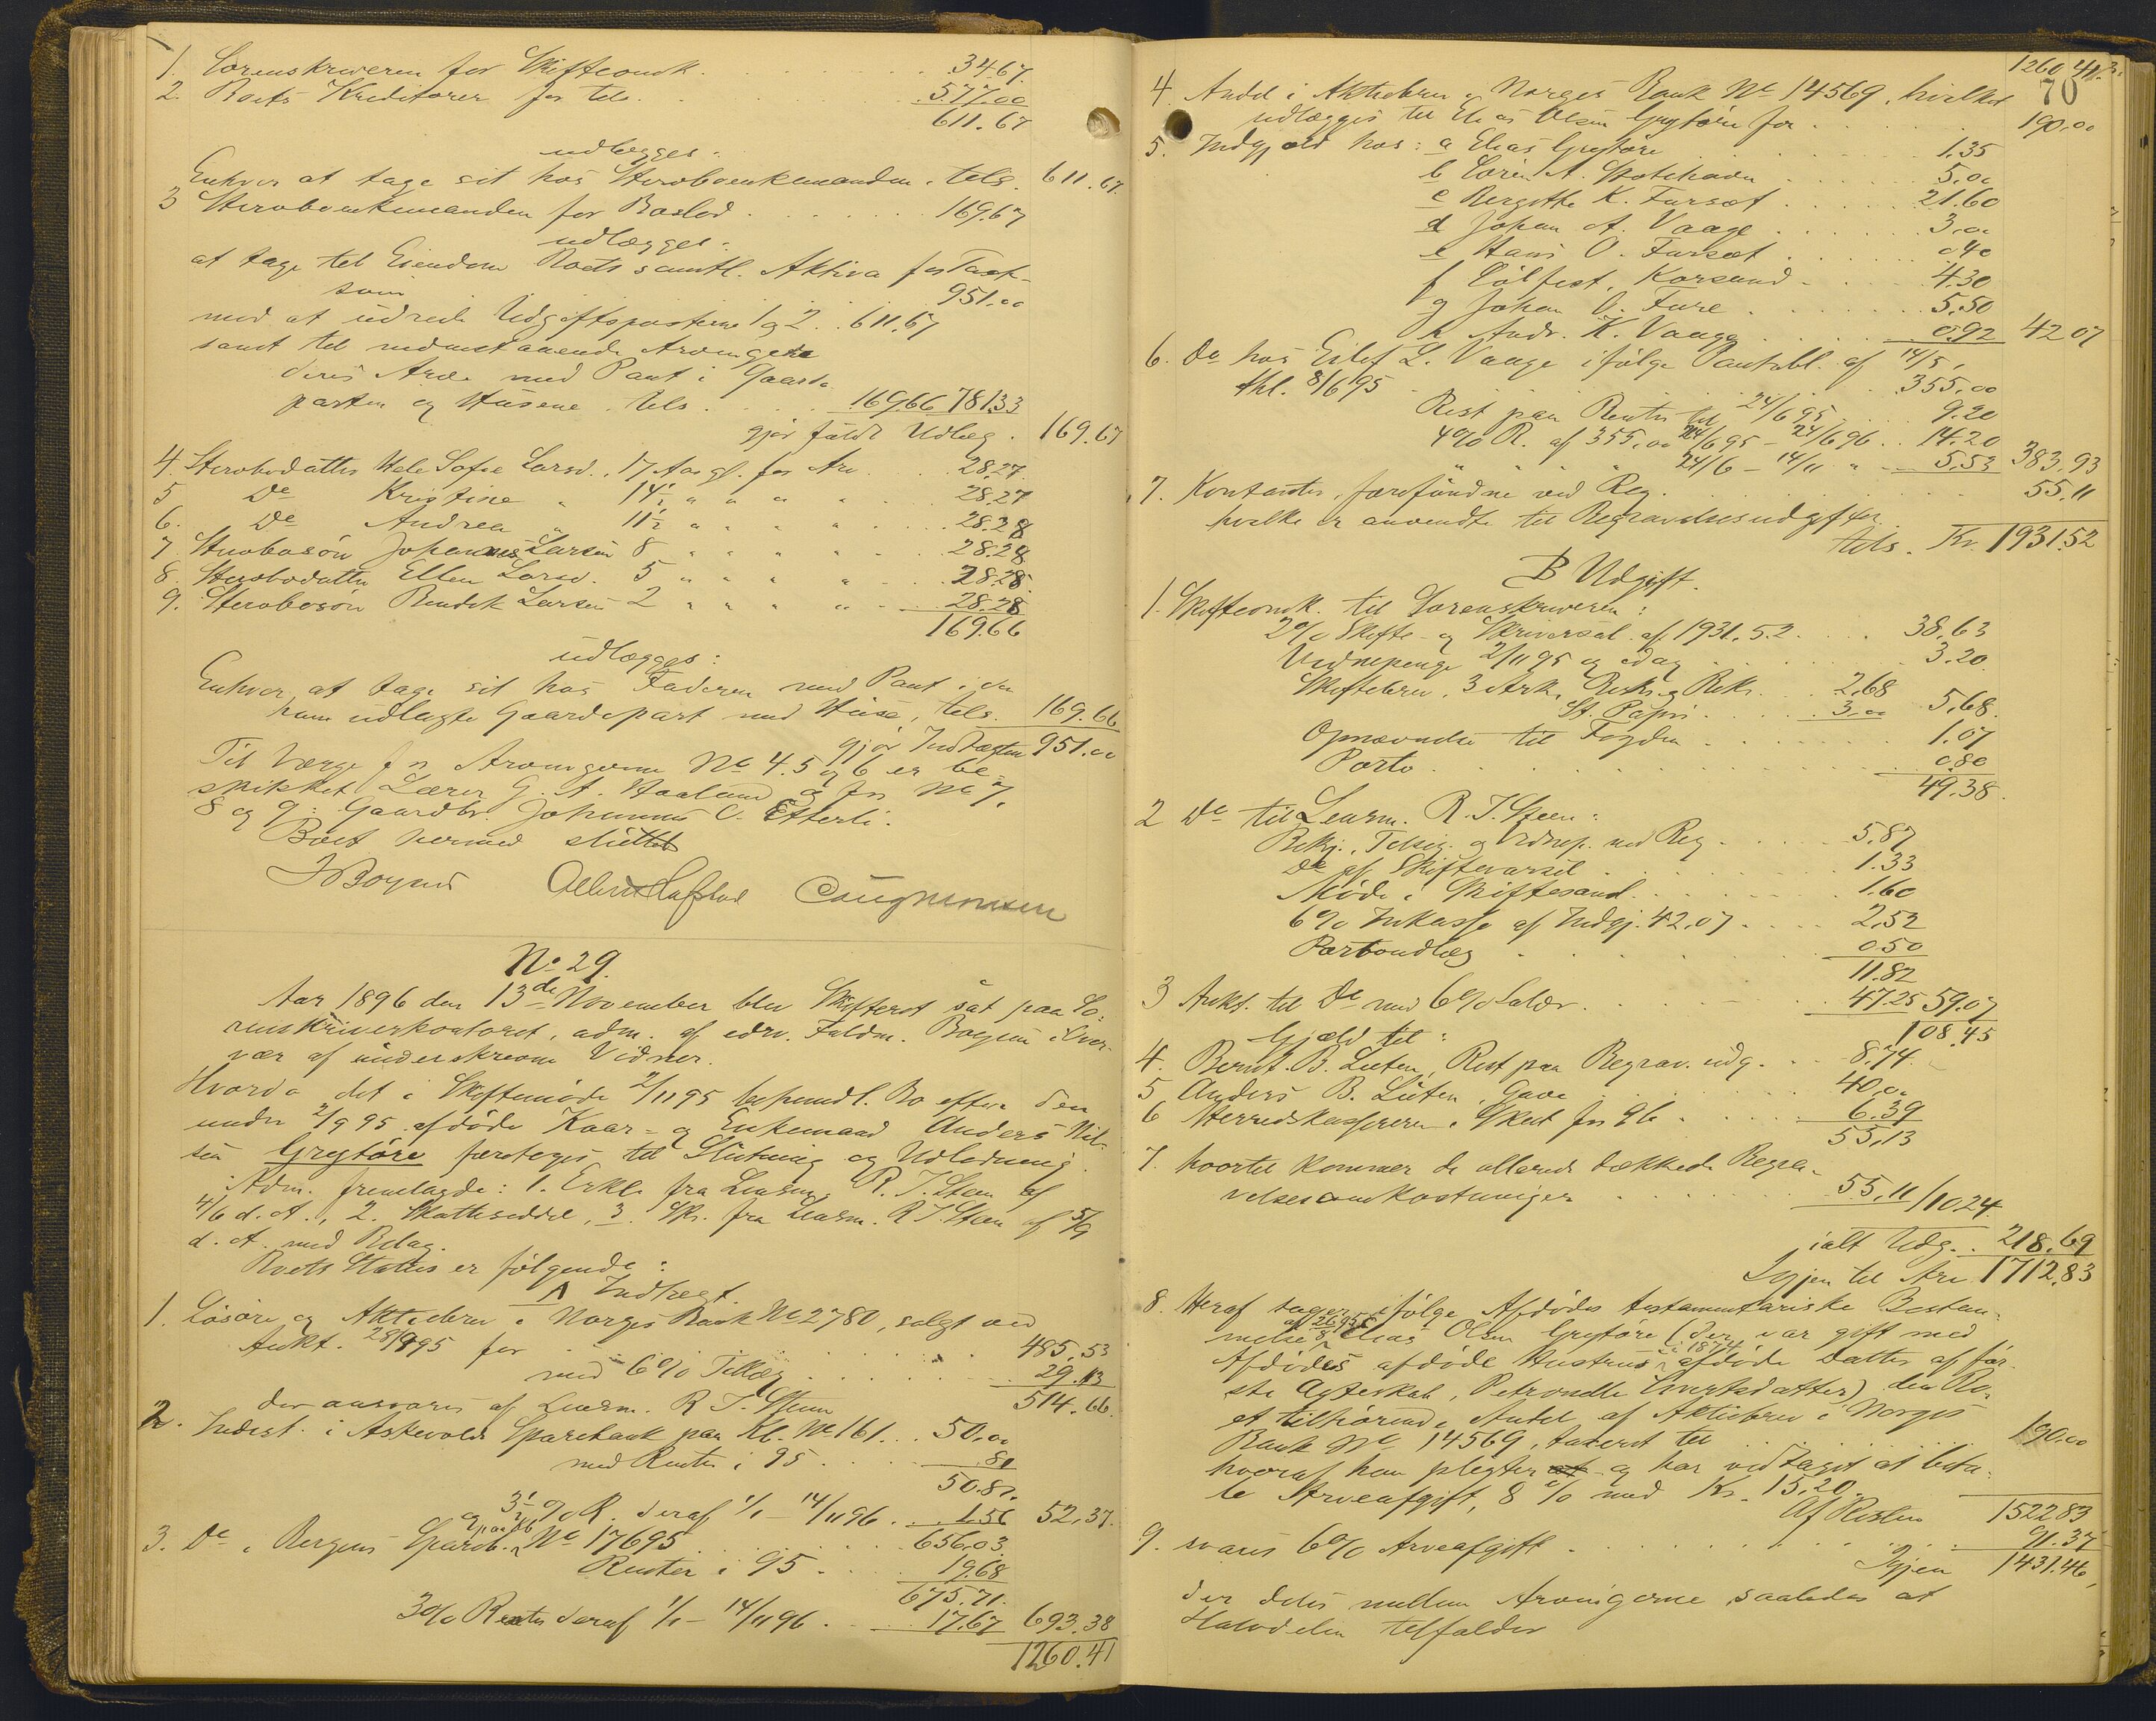 1. Sorenskriveren for Skifteomk. 34.67.
2. Boets Kreditorer for tils. 577.00
611.67
udlægges:
Enhver at tage sit hos Sterbenkemanden, tils. 611.67.
3 Sterboenkemanden for Boslod 169.67
udlægges:
at tage til Eiendom Boets samtl. Aktiva for Taxt-
sum 951.00
mod at udrede Udgiftsposterne 1 og 2 . . 611.67
samt til nedenstaaende Arvinger
deres Arv med Pant i Gaards-
parten og Husene, tils. 169.66 781.33
gjør fuldt Udlæg. 169.67
4. Sterbodatter Sofie Larsd., 17 Aar gl. for Arv 28.27.
5 Do Kristine " 14½ " " " " 28.27
6. Do Andrea " 11½ " " " " 28.28
7 Sterbosøn Johannes Larsen 8 " " " " 28.28
8. Sterbodatter Ellen Larsd. 5 " " " " 28.28
9. Sterbosøn Bendik Larsen 2 " " " " 28.28
169.66
udlægges:
Enhver at tage sit hos Faderen med Pant i den
ham udlagte Gaardspart med Huse, tils. 169.66
gjør Indtægten 951.00
Til Værge for Arvingerne No 4. 5 og 6 er be-
skikket Lærer G. A. Haaland og for No 7,
8 og 9: Gaardbr. Johannes O. Etterli.
Boet hermed sluttet
No 29.
Aar 1896 den 13de November blev Skifteret sat paa So-
renskriverkontoret, adm. af edsv. Fuldm. Bøgeud i Over-
vær af underskrevne Vidner.
Hvorda det i Skiftemøde 2/11 95 behandl. Bo efter den
under 2/9 95 afdøde Kaar- og Enkemand Anders Nil-
sen Grytøre foretoges til Slutning og Udlodning.
Adm. fremlagde: 1. Erkl. fra Lensm. R. T. Steen af
4/6 d. A., 2. Skatteseddel, 3. Skr. fra Lensm. R T. Steen af 5/9
d. A. med Bilag.
Boets Status er følgende:
A Indtægt.
1. Løsøre og Aktiebrev i Norges Bank No 2780, solgt ved
Aukt. 28/9 95 for 485.53
med 6% Tillæg 29.13
der ansvares af Lensm. R T. Steen 514.66.
2. Indest. i Askevolds Sparebank paa Kb. No 161 . . 50.00
med Renter i 95 . 81
50.81.
3½ % R. deraf 1/1 – 14/11 96 . . 1.56 52.37.
3. Do i Bergens Spareb. og paa Kb No 17695 656.03.
Renter i 95 . 19.68
675.71.
3% Renter deraf 1/1 – 14/11 96 . 17.67 693.38
1260.41
1260 41.
70
4. Andel i Aktiebrev i Norges Bank No 14569, hvilket
udlægges til Elias Olsen Grytøre for 190.00
5. Indgjæld hos: a Elias Grytøre 1.35
b Søren A. 5.00
c Bergitte K. Fursæt 21.60
d Johan A. Vaage 3.00
e Hans O. Fursæt 0 40
f Korssund 4.30
g Johan O. Fure 5.50
h Andr. K. Vaage 0.92 42 07
6. Do hos Eilef L. Vaage ifølge Pantobl. af 14/5,
thl. 8/6 95 355.00
Rest paa Renter til 24/6 95 9.20
4% R. af 355.00 24/6 95 – 24/6 96 . 14.20
" " " 24/6 – 14/11 " 5.53 383.93
7. Kontanter, forefundne ved Reg. 55.11
hvilke er anvendte til Begravelsesudgifter
tils. Kr. 1931.52
B Udgift.
1. Skifteomk. til Sorenskriveren:
2% Skifte- og Skriversal. af 1931.52 38.63
Vidnepenge 2/11 95 og idag 3.20
Skiftebrev, 3 Ark, Besk. og Bekr. 2.68
St. Papir 3.00 5.68.
Opnævnelse til Fogden 1.07
Porto 0.80
49.38.
2 Do til Lensm. R. T. Steen:
Bekj., Tilsig. og Vidnep. ved Reg 5.87
Do af Skiftevarsel 1.33
Møde i Skiftesaml. 1.60
6% Inkasso af Indgj. 42.07 2.52
0.50
11.82
3 Aukt. til Do med 6% Salær 47.25 59.07
Gjæld til: 108.45
4. Bernt B. Liten, Rest paa Begrav. udg. 8.74.
5 Anders B. Liten, Gave 40.00
6 Herredskassereren, Skat for 96 6.39
55.13
7. hvortil kommer de allerede dækkede Begra-
velsesomkostninger 55.11 / 110.24
ialt Udg. . 218.69
Igjen til Arv 1712.83
8. Heraf tager ifølge Afdødes testamentariske Bestem-
melse af 26/8 95 Elias Olsen Grytøre (der var gift med
Afdødes afdøde Hustrus i 1874 afdøde Datter af før-
ste Ægteskab, Petronelle Sivertsdatter) den Bo-
et tilhørende Andel af Aktiebrev i Norges
Bank No 14569, taxeret til 190.00
hvoraf han pligter at og har vedtaget at beta-
le Arveafgift, 8 % med Kr. 15.20.
Af Resten 1522.83
9. svares 6% Arveafgift 91.37
Igjen 1431.46,
der deles mellem Arvingerne saaledes at
Halvdelen tilfalder